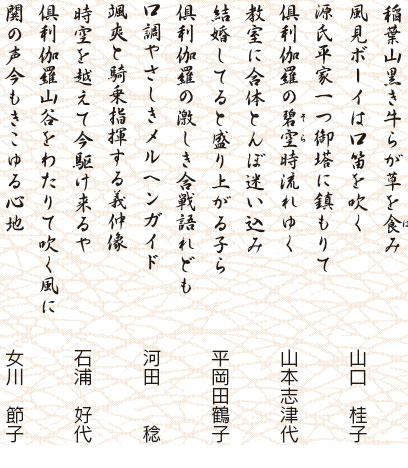 稲葉山黒き牛らが草を食み
風見ボーイは口笛を吹く
山口　桂子
源氏平家一つ御塔に鎮もりて
倶利伽羅の碧空時流れゆく
山本志津代
教室に合体とんぼ迷い込み
結婚してると盛り上がる子ら
平岡田鶴子
倶利伽羅の激しき合戦語れども
口調やさしきメルヘンガイド
河田　稔
颯爽と騎乗指揮する義仲像
時空を越えて今駆け来るや
石浦　好代
倶利伽羅山谷をわたりて吹く風に
関の声今もきこゆる心地
女川　節子